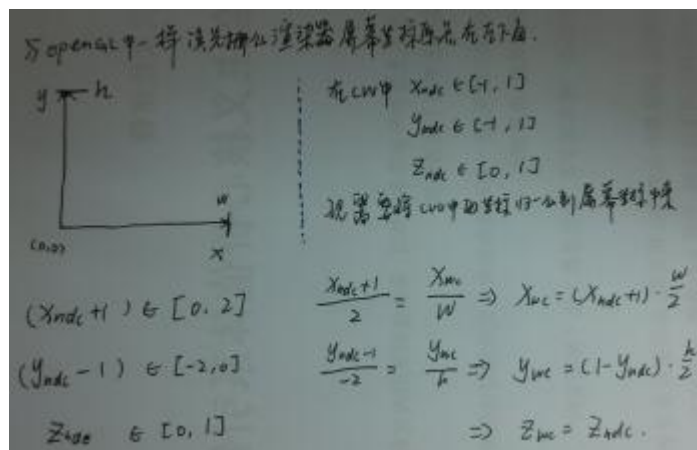 与openGL中一样 渲染器屏幕坐标原点在左下角.
y h
w
(0,0)
x
在CVV中 Xndc ∈ [-1, 1]
Yndc ∈ [-1, 1]
Zndc ∈ [0, 1]
现需要将CVV中的坐标归一化到屏幕坐标中来
(Xndc+1) ∈ [0, 2]
(Yndc-1) ∈ [-2, 0]
Zndc ∈ [0, 1]
(Xndc+1)/2 = Xwc/W ⇒ Xwc = (Xndc+1)·w/2
(Yndc-1)/-2 = Ywc/h ⇒ Ywc = (1-Yndc)·h/2
⇒ Zwc = Zndc.